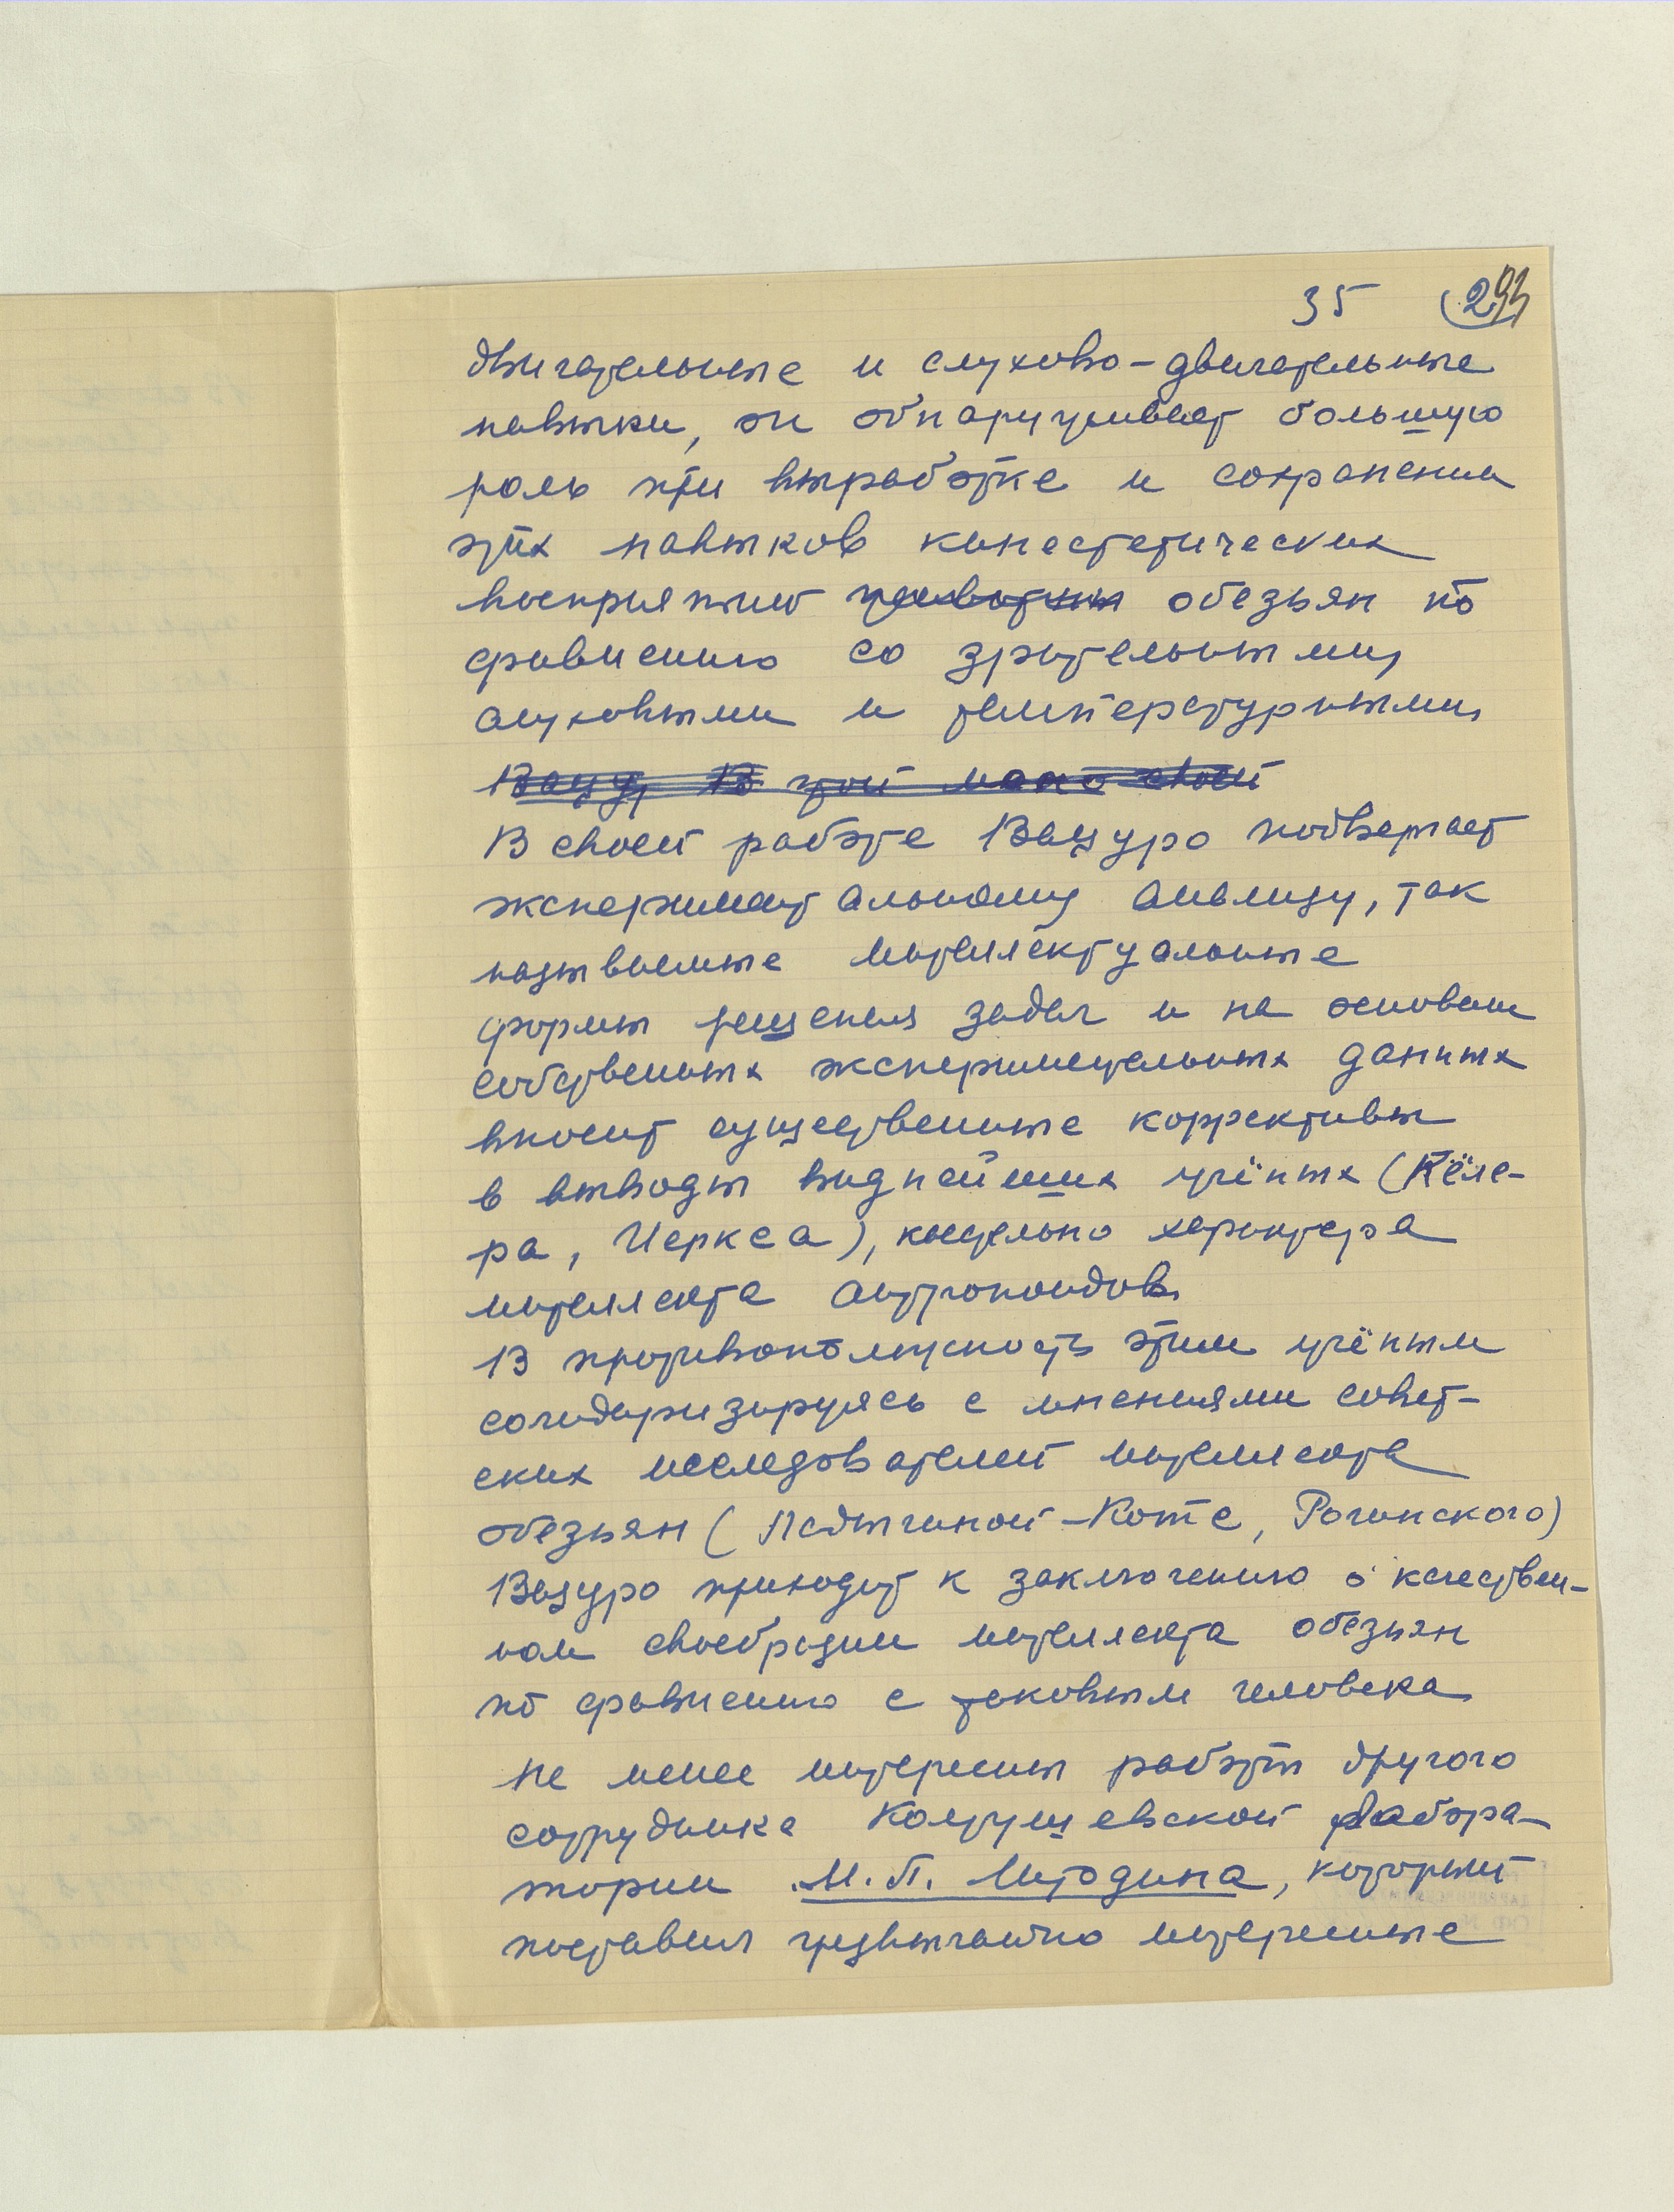 35 293
двигательные и слухово-двигательные
навыки, он обнаруживает большую
роль при выработке и сохранении
этих навыков кинестетических
восприятий обезьян по
сравнению со зрительными,
слуховыми и температурными.
Вацу, В этой своей
В своей работе Вацуро подвергает
экспериментальному анализу, так
называемые интеллектуальные
формы решения задач и на основании
собственных экспериментальных данных
вносит существенные коррективы
в выводы виднейших учёных (Кёле-
ра, Иеркса), касательно характера
интеллекта антропоидов.
В противоположность этим учёным
солидаризируясь с мнениями совет-
ских исследователей интеллекта
обезьян (Ладыгиной-Котс, Рогинского)
Вацуро приходит к заключению о качествен-
ном своеобразии интеллекта обезьян
по сравнению с таковым человека
Не менее интересны работы другого
сотрудника Колтушевской лабора-
тории М.П. Штодина, который
поставил чрезвычайно интересные